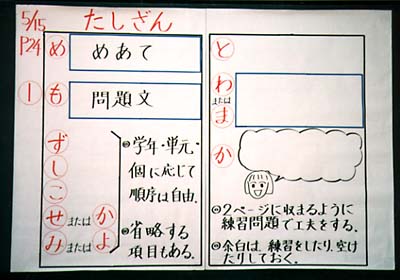 5/15
P24
たしざん
め
めあて
1
も
問題文
ず
し
こ
せ または か
み または よ
◎学年・単元・
個に応じて
順序は自由.
◎省略する
項目もある.
と
わ
または
ま
か
◎2ページに収まるように
練習問題で工夫をする.
◎余白は、練習をしたり、空け
たりしておく.